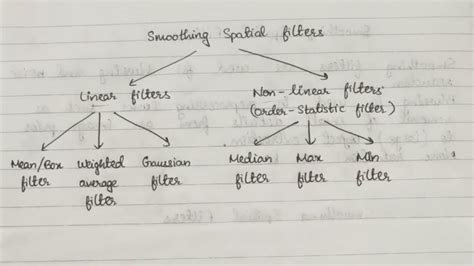 Smoothing Spatial filters
Linear filters
Non-linear filters
(Order-Statistic filter)
Mean/Box
filter
Weighted
average
filter
Gaussian
filter
Median
filter
Max
filter
Min
filter